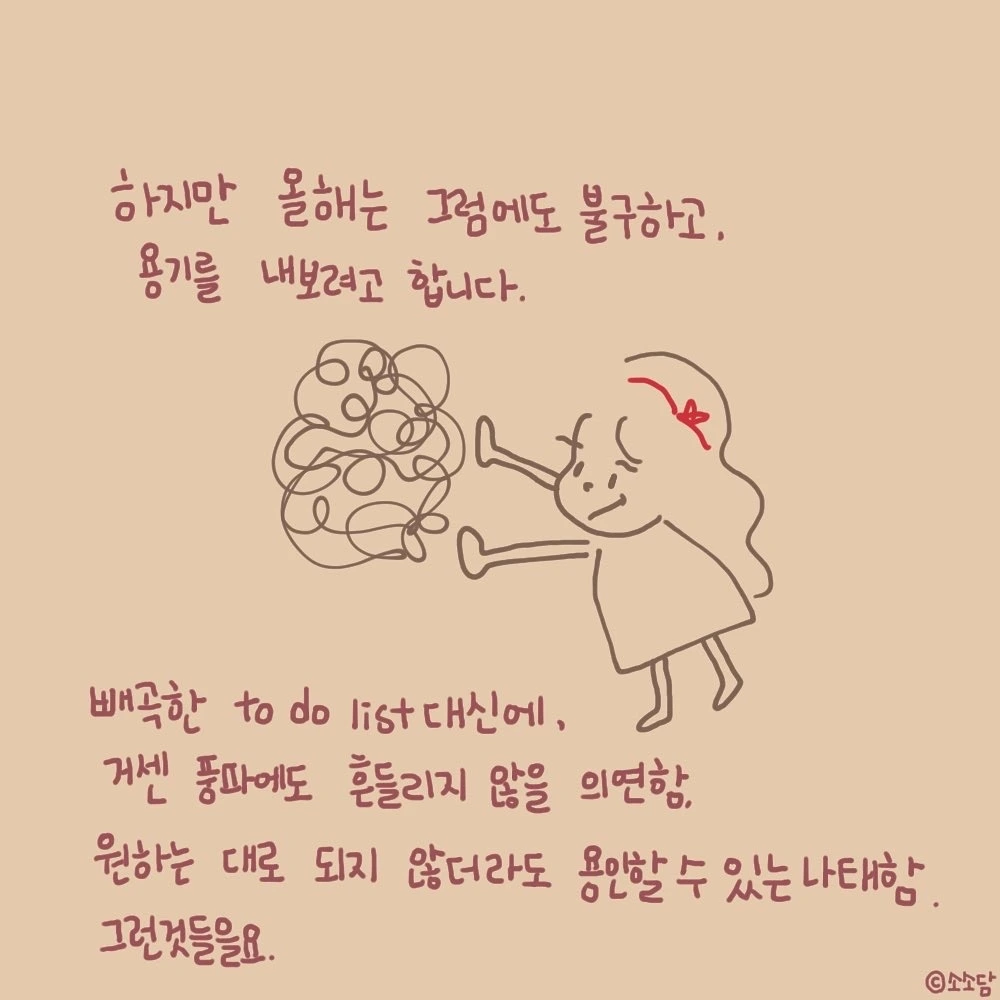 하지만 올해는 그럼에도 불구하고,
용기를 내보려고 합니다.
빼곡한 to do list 대신에,
거센 풍파에도 흔들리지 않을 의연함,
원하는 대로 되지 않더라도 용인할 수 있는 나태함.
그런것들을요.
©소소담